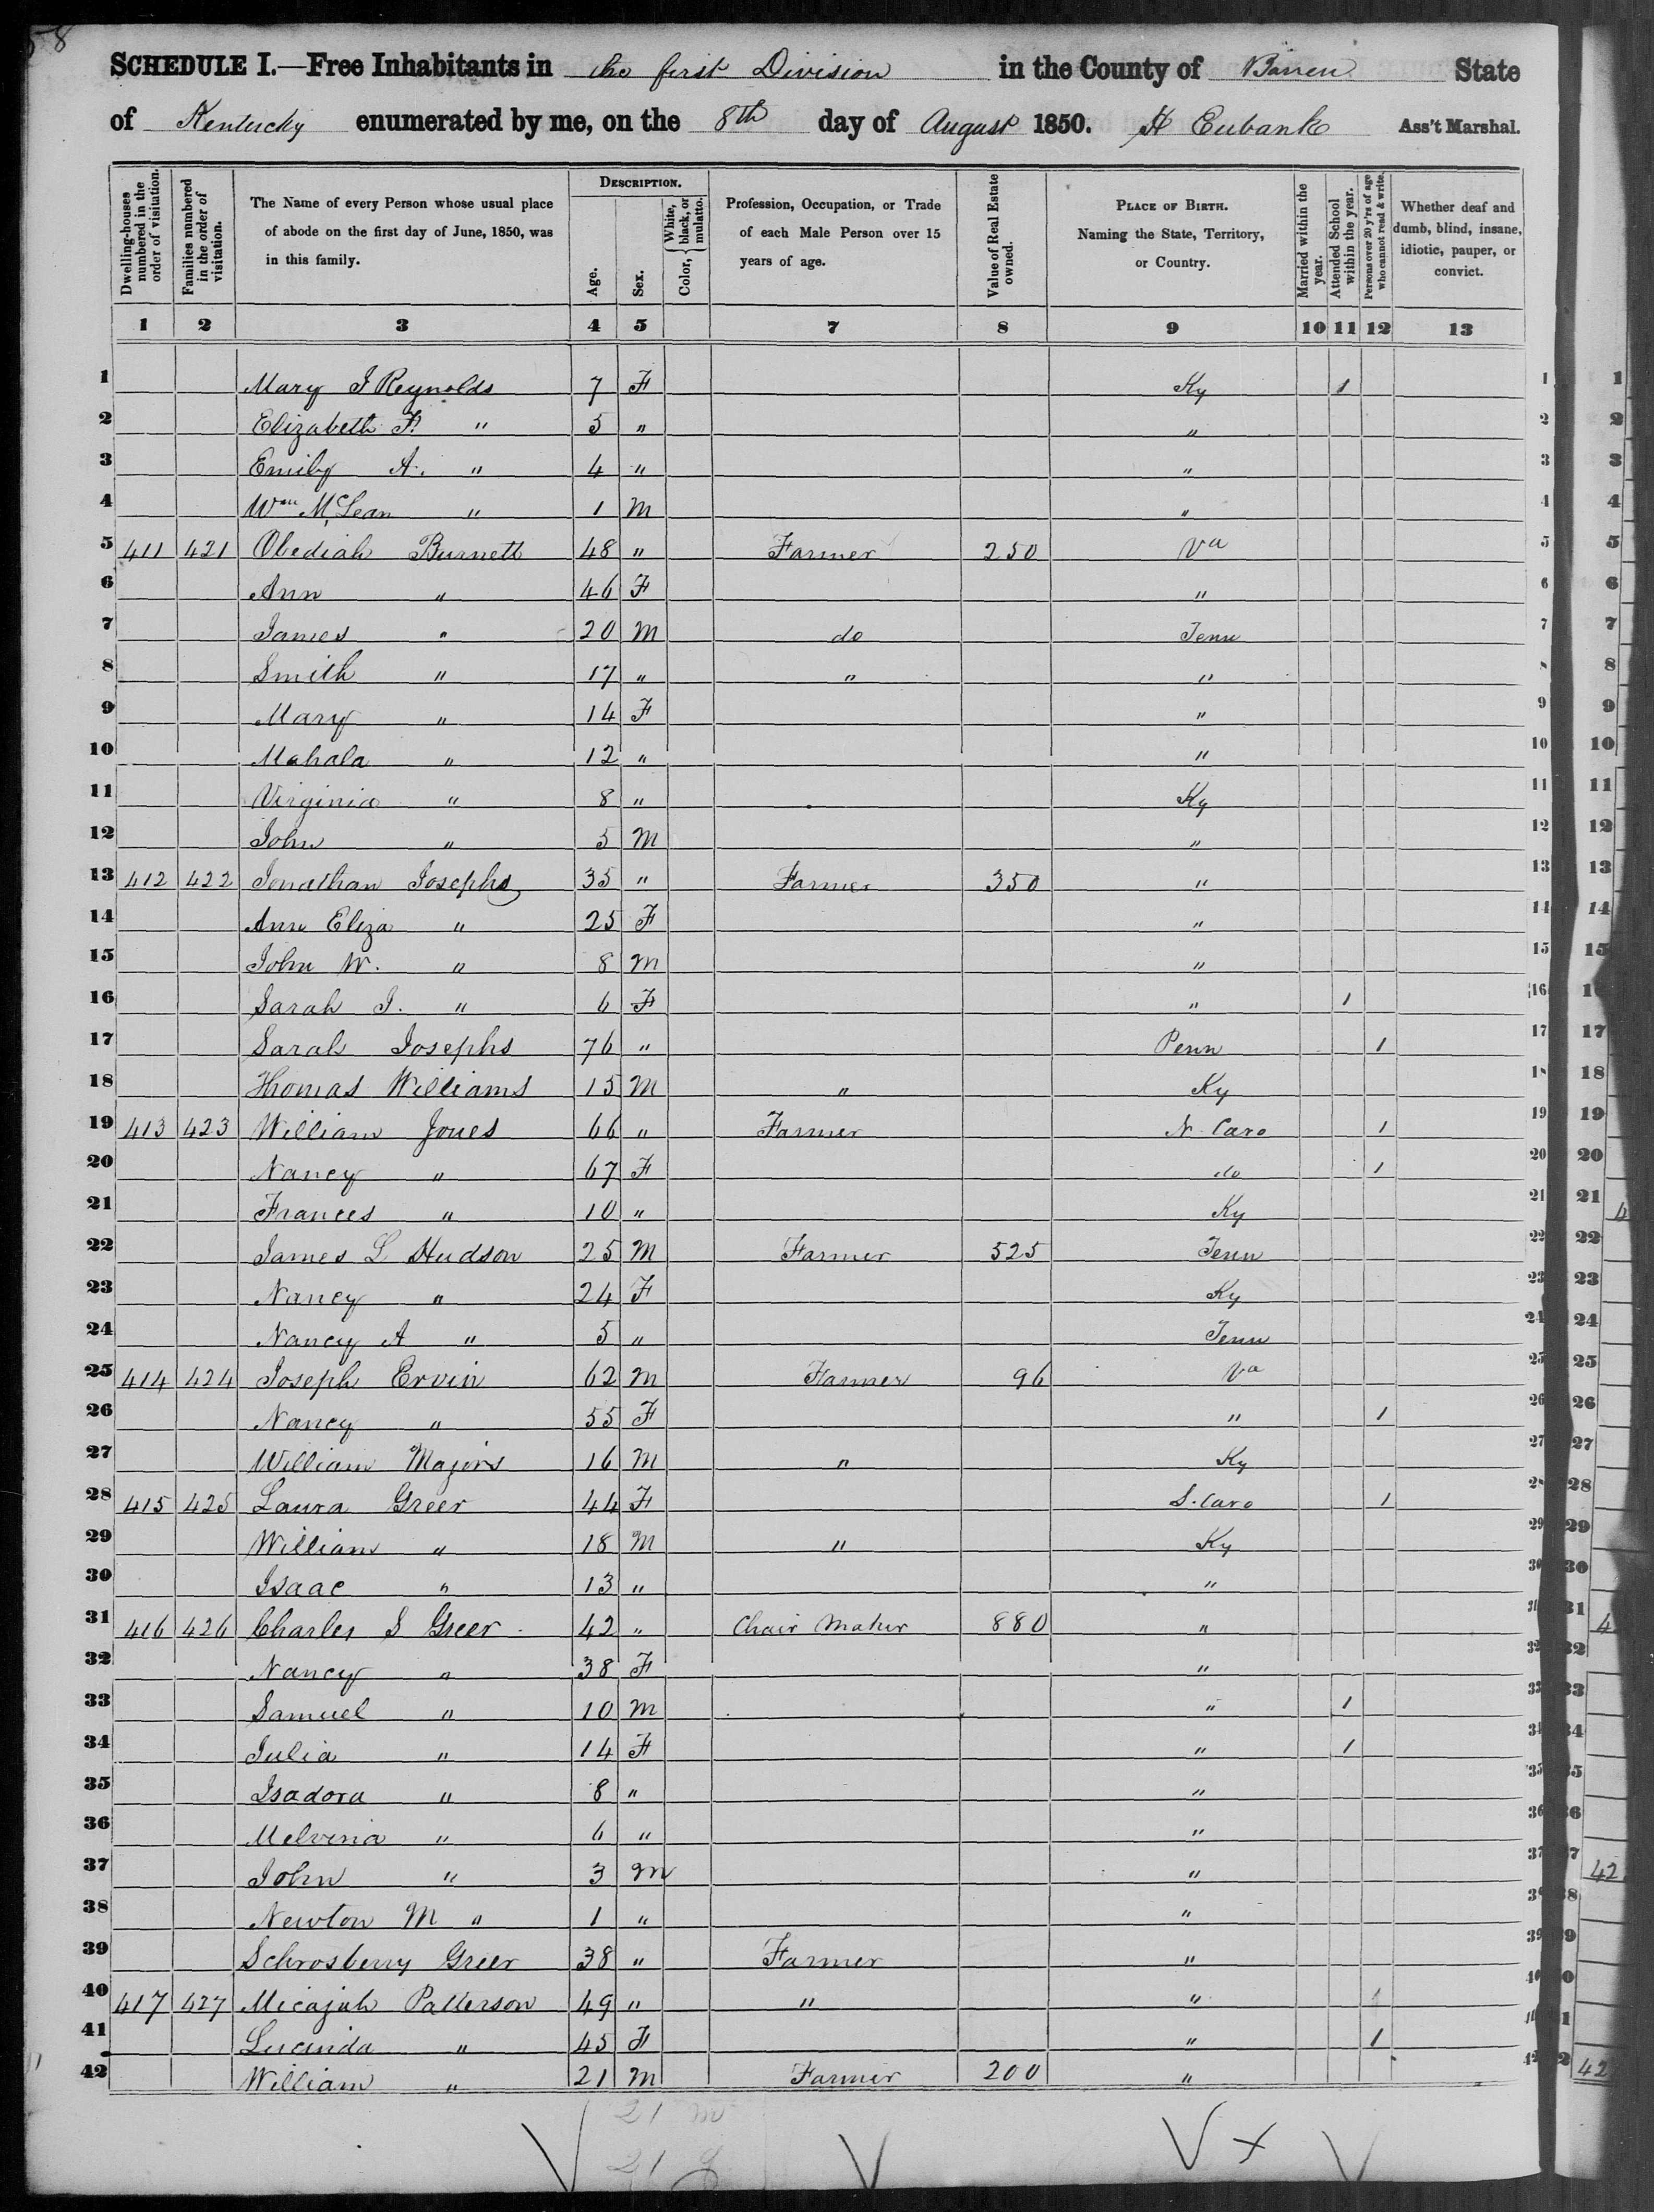 58
SCHEDULE I.—Free Inhabitants in the first Division in the County of Barren State
of Kentucky enumerated by me, on the 8th day of August 1850. H Eubank Ass't Marshal.
Dwelling-houses numbered in the order of visitation.
Families numbered in the order of visitation.
The Name of every Person whose usual place of abode on the first day of June, 1850, was in this family.
DESCRIPTION.
Age.
Sex.
Color, { White, black, or mulatto.
Profession, Occupation, or Trade of each Male Person over 15 years of age.
Value of Real Estate owned.
PLACE OF BIRTH.
Naming the State, Territory, or Country.
Married within the year.
Attended School within the year.
Persons over 20 y'rs of age who cannot read & write.
Whether deaf and dumb, blind, insane, idiotic, pauper, or convict.
1 2 3 4 5 7 8 9 10 11 12 13
1 Mary J Reynolds 7 F Ky 1 1
2 Elizabeth F. " 5 " " 2
3 Emily A. " 4 " " 3
4 Wm McLean " 1 M " 4
5 411 421 Obediah Burnett 48 " Farmer 250 Va 5
6 Ann " 46 F " 6
7 James " 20 M do Tenn 7
8 Smith " 17 " " " 8
9 Mary " 14 F " 9
10 Mahala " 12 " " 10
11 Virginia " 8 " Ky 11
12 John " 5 M " 12
13 412 422 Jonathan Josephs 35 " Farmer 350 " 13
14 Ann Eliza " 25 F " 14
15 John W. " 8 M " 15
16 Sarah J. " 6 F " 1 16
17 Sarah Josephs 76 " Penn 1 17
18 Thomas Williams 15 M " Ky 18
19 413 423 William Jones 66 " Farmer N. Caro 1 19
20 Nancy " 67 F do 1 20
21 Frances " 10 " Ky 21
22 James L Hudson 25 M Farmer 525 Tenn 22
23 Nancy " 24 F Ky 23
24 Nancy A " 5 " Tenn 24
25 414 424 Joseph Ervin 62 M Farmer 96 Va 25
26 Nancy " 55 F " 1 26
27 William Majors 16 M " Ky 27
28 415 425 Laura Greer 44 F S. Caro 1 28
29 William " 18 M " Ky 29
30 Isaac " 13 " " 30
31 416 426 Charles S Greer 42 " Chair Maker 880 " 31
32 Nancy " 38 F " 32
33 Samuel " 10 M " 1 33
34 Julia " 14 F " 1 34
35 Isadora " 8 " " 35
36 Melvina " 6 " " 36
37 John " 3 M " 37
38 Newton M " 1 " " 38
39 Schrosberry Greer 38 " Farmer " 39
40 417 427 Micajah Patterson 49 " " " 1 40
41 Lucinda " 45 F " 1 41
42 William " 21 M Farmer 200 " 42
21 m
21